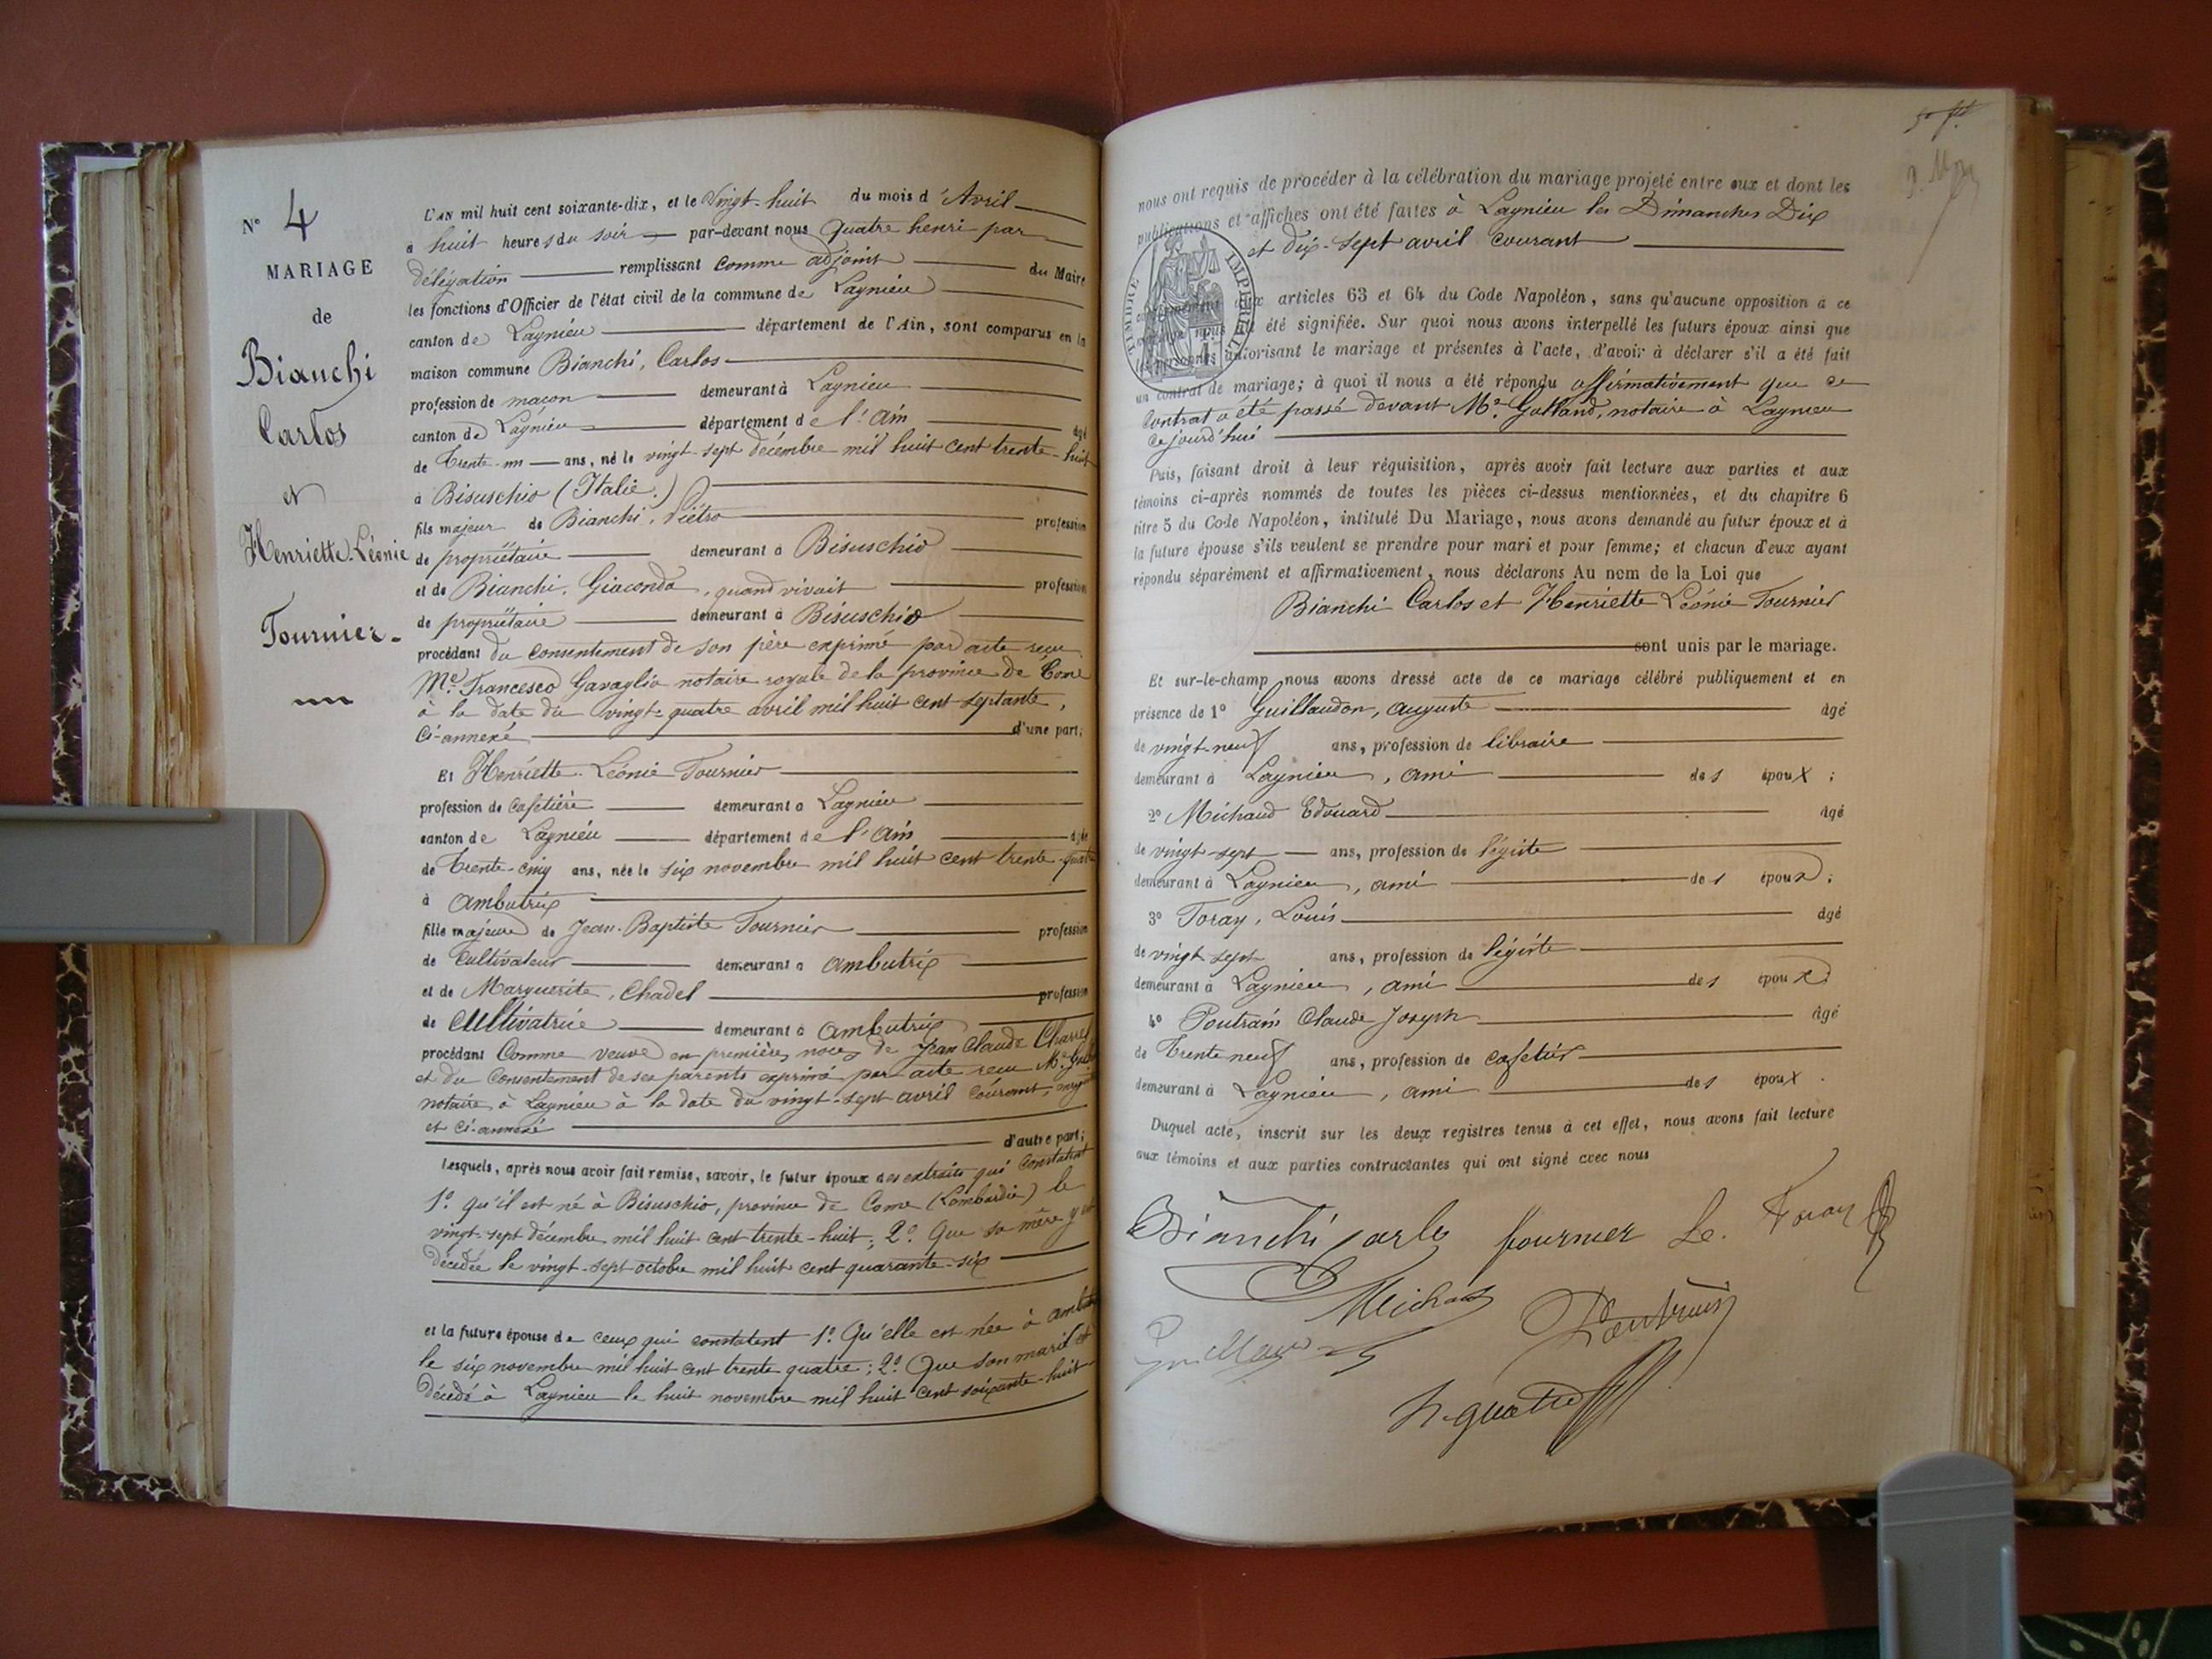 N° 4
MARIAGE
de
Bianchi
Carlos
et
Henriette-Léonie
Tournier-
L'AN mil huit cent soixante-dix, et le Vingt-huit du mois d'Avril
à huit heures du soir par-devant nous Quatre henri par
délégation remplissant comme adjoint du Maire
les fonctions d'Officier de l'état civil de la commune de Lagnieu
canton de Lagnieu département de l'Ain, sont comparus en la
maison commune Bianchi, Carlos
profession de maçon demeurant à Lagnieu
canton de Lagnieu département de l'Ain âgé
de Trente-un ans, né le vingt-sept décembre mil huit cent trente-huit
à Bisuschio (Italie.)
fils majeur de Bianchi, Piétro profession
de propriétaire demeurant à Bisuschio
et de Bianchi, Giaconda, quand vivait profession
de propriétaire demeurant à Bisuschio
procédant du consentement de son père exprimé par acte reçu
Me Francesco Gavaglio notaire royale de la province de Come
à la date du vingt-quatre avril mil huit cent septante,
ci-annexé d'une part;
Et Henriette-Léonie Tournier
profession de cafetière demeurant à Lagnieu
canton de Lagnieu département de l'Ain âgée
de Trente-cinq ans, née le six novembre mil huit cent trente-quatre
à Ambutrix
fille majeure de Jean-Baptiste Tournier profession
de Cultivateur demeurant à Ambutrix
et de Marguerite, Chadel profession
de Cultivatrice demeurant à Ambutrix
procédant Comme veuve en premières noces de Jean Claude
et du consentement de ses parents exprimé par acte reçu Me
notaire à Lagnieu à la date du vingt-sept avril courant,
et ci-annexé
d'autre part;
Lesquels, après nous avoir fait remise, savoir, le futur époux des extraits qui constatent
1° qu'il est né à Bisuschio, province de Come (Lombardie) le
vingt-sept décembre mil huit cent trente-huit; 2° Que sa mère y est
décédée le vingt-sept octobre mil huit cent quarante-six
et la future épouse de ceux qui constatent 1° Qu'elle est née à
le six novembre mil huit cent trente quatre; 2° Que son mari est
décédé à Lagnieu le huit novembre mil huit cent soixante-huit
nous ont requis de procéder à la célébration du mariage projeté entre eux et dont les
publications et affiches ont été faites à Lagnieu les Dimanches Dix
et dix-sept avril courant
TIMBRE IMPERIAL
conformément aux articles 63 et 64 du Code Napoléon, sans qu'aucune opposition à ce
mariage nous ait été signifiée. Sur quoi nous avons interpellé les futurs époux ainsi que
les personnes autorisant le mariage et présentes à l'acte, d'avoir à déclarer s'il a été fait
un contrat de mariage; à quoi il nous a été répondu affirmativement que ce
Contrat a été passé devant Me Galland, notaire à Lagnieu
ce jourd'hui
Puis, faisant droit à leur réquisition, après avoir fait lecture aux parties et aux
témoins ci-après nommés de toutes les pièces ci-dessus mentionnées, et du chapitre 6
titre 5 du Code Napoléon, intitulé Du Mariage, nous avons demandé au futur époux et à
la future épouse s'ils veulent se prendre pour mari et pour femme; et chacun d'eux ayant
répondu séparément et affirmativement, nous déclarons Au nom de la Loi que
Bianchi Carlos et Henriette Léonie Tournier
sont unis par le mariage.
Et sur-le-champ nous avons dressé acte de ce mariage célébré publiquement et en
présence de 1° Guillaudon, Auguste âgé
de vingt-neuf ans, profession de libraire
demeurant à Lagnieu, ami des époux;
2° Michaud Edouard âgé
de vingt-sept ans, profession de légiste
demeurant à Lagnieu, ami des époux;
3° Toray, Louis âgé
de vingt sept ans, profession de légiste
demeurant à Lagnieu, ami des époux
4° Poutrain Claude Joseph âgé
de Trente neuf ans, profession de cafetier
demeurant à Lagnieu, ami des époux.
Duquel acte, inscrit sur les deux registres tenus à cet effet, nous avons fait lecture
aux témoins et aux parties contractantes qui ont signé avec nous
Bianchi Carlo fournier Le. Toray
Michaud Poutrain
h. quatre